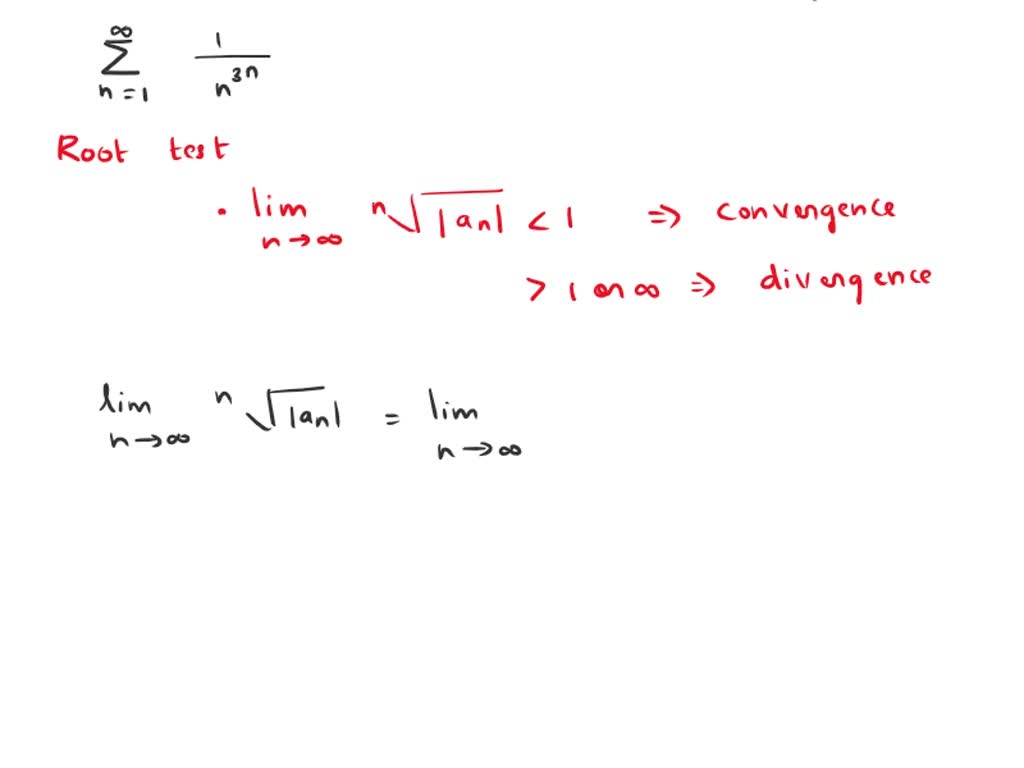 ∞
Σ 1/n^{3n}
n=1
Root test
· lim n→∞ ⁿ√|an| < 1 ⇒ convergence
> 1 or ∞ ⇒ divergence
lim n→∞ ⁿ√|an| = lim n→∞